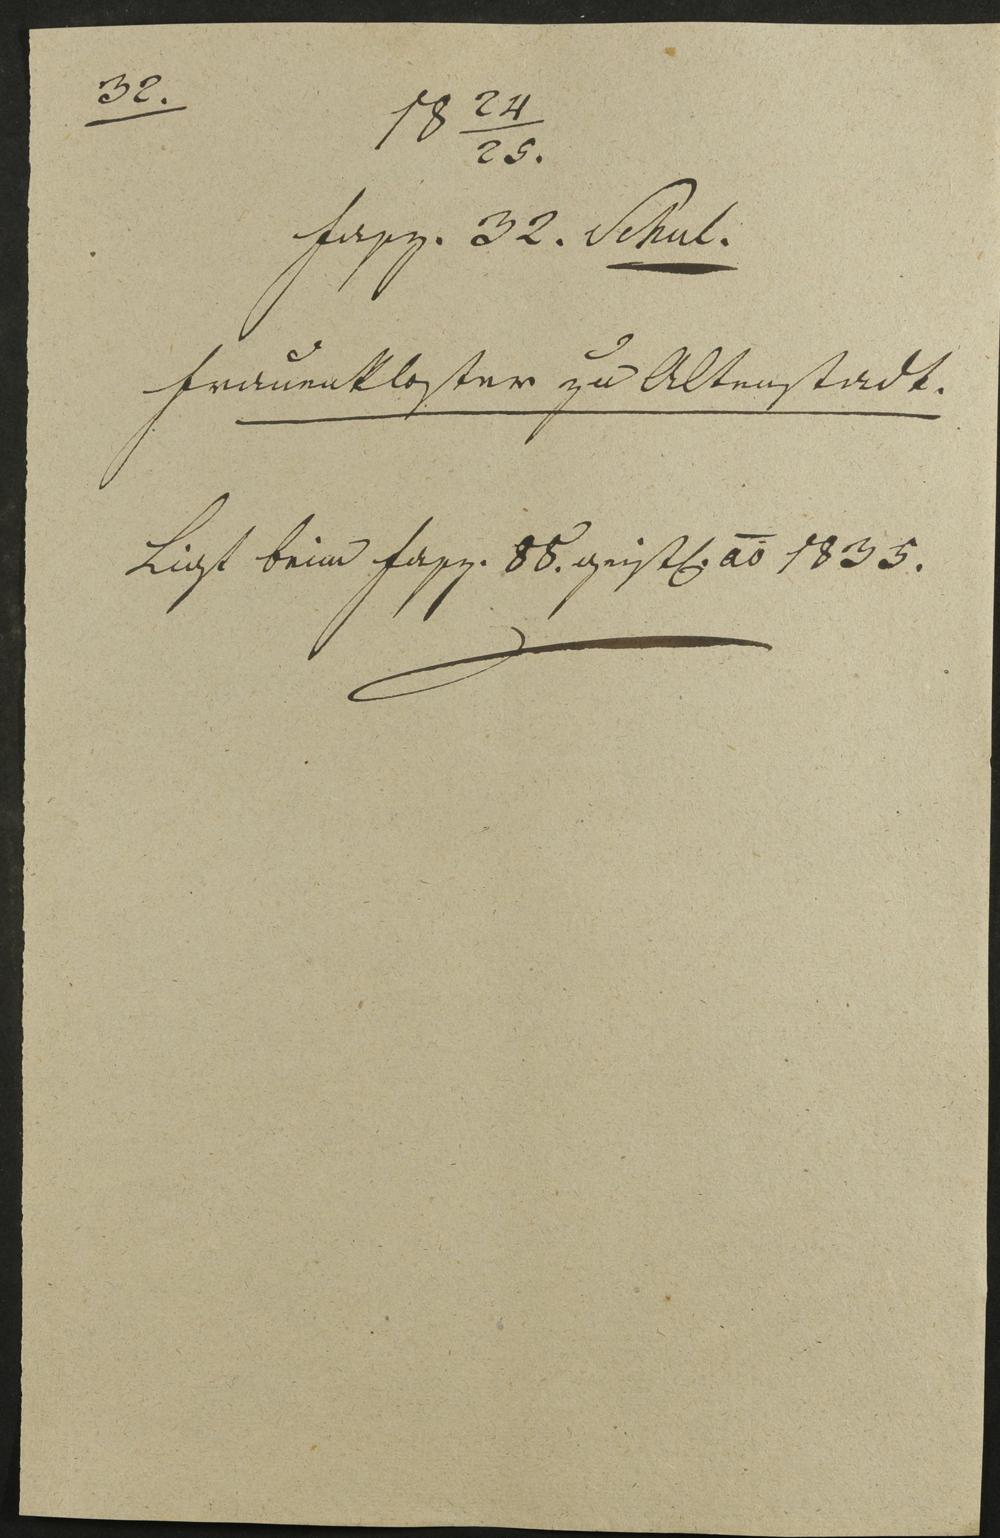 32.
18 24/25.
Fasz. 32. Schul.
Frauenkloster zu Altenstadt.
Ligt beim Fasz. 88. geistl. ao 1835.